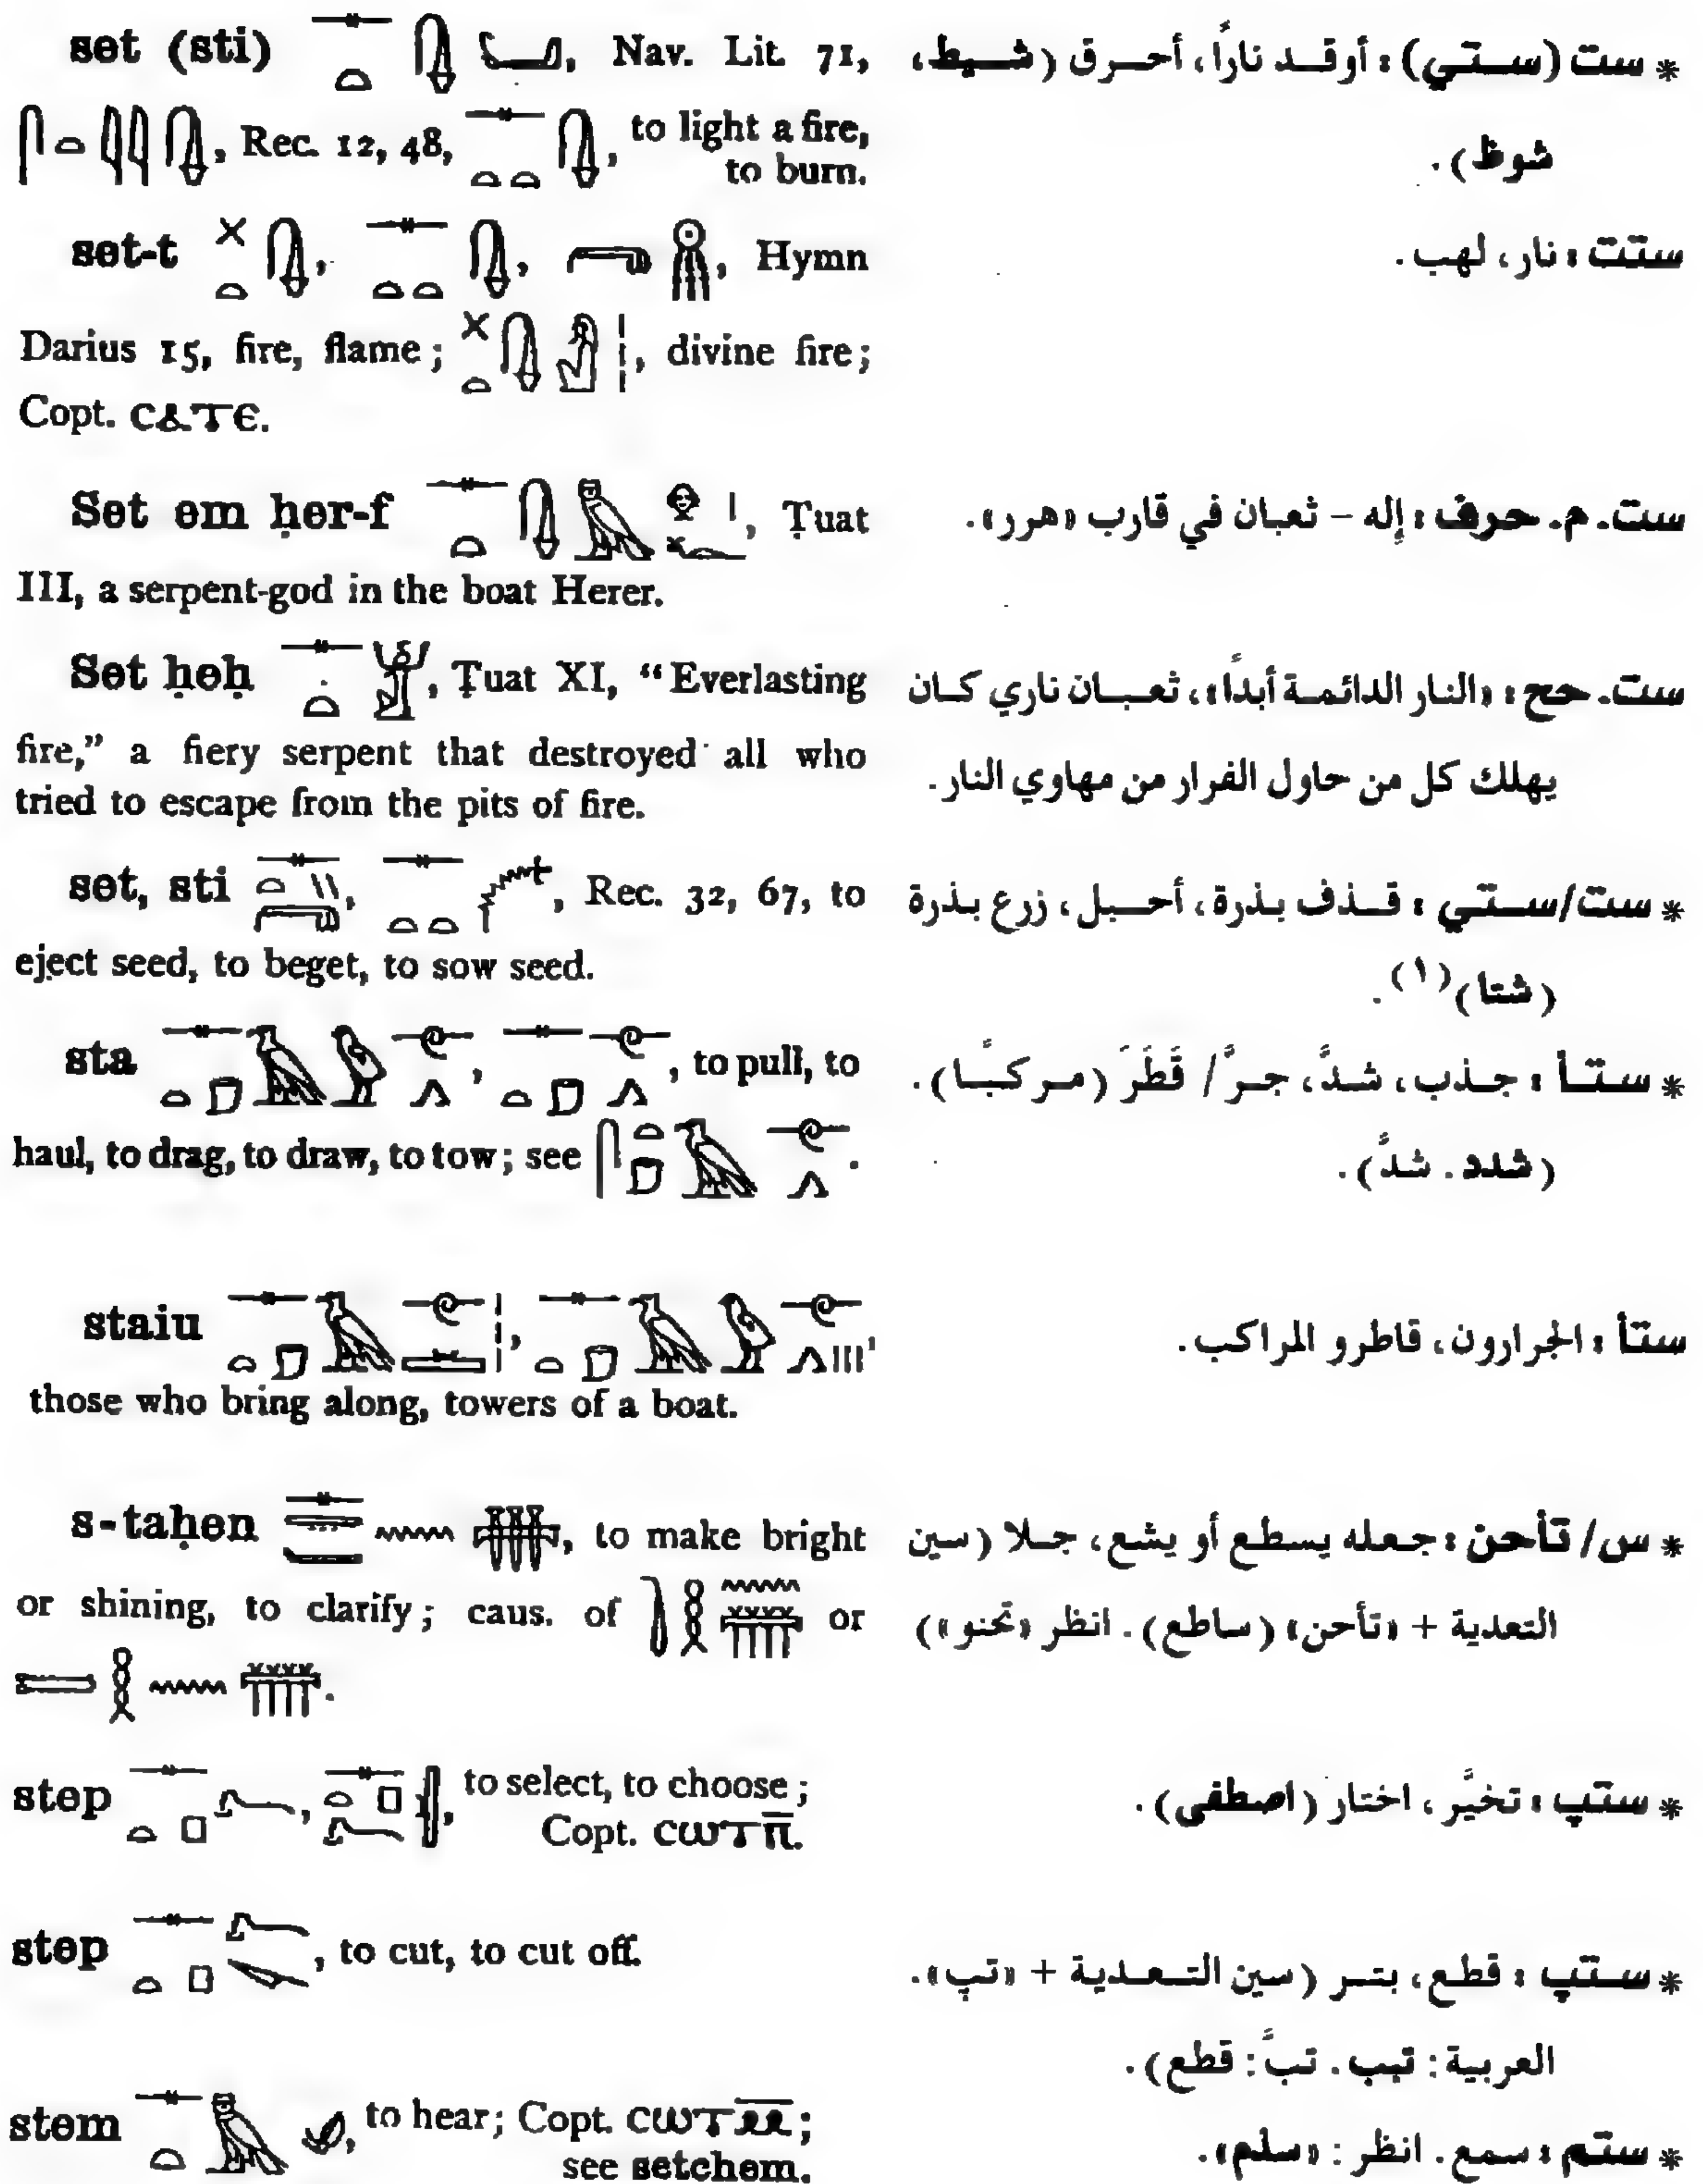 set (sti) , Nav. Lit. 71,
, Rec. 12, 48, , to light a fire,
to burn.
set-t , , , Hymn
Darius 15, fire, flame; , divine fire;
Copt. ⲥⲁⲧⲉ.
Set em ḥer-f , Ṭuat
III, a serpent-god in the boat Herer.
Set ḥeḥ , Ṭuat XI, “Everlasting
fire,” a fiery serpent that destroyed all who
tried to escape from the pits of fire.
set, sti , , Rec. 32, 67, to
eject seed, to beget, to sow seed.
sta , , to pull, to
haul, to drag, to draw, to tow; see .
staiu , ,
those who bring along, towers of a boat.
s-taḥen , to make bright
or shining, to clarify; caus. of or
.
step , , to select, to choose;
Copt. ⲥⲱⲧⲡ̅.
step , to cut, to cut off.
stem , to hear; Copt. ⲥⲱⲧⲙ̅;
see setchem.
* ست (ستي) : أوقد ناراً، أحرق (شيط،
شوظ).
ستت : نار، لهب.
ست. م. حرف : إله – ثعبان في قارب «هرر».
ست. حح : «النار الدائمة أبداً»، ثعبان ناري كان
يهلك كل من حاول الفرار من مهاوي النار.
* ست/ستي : قذف بذرة، أحبل، زرع بذرة
(شتا)(١).
* ستأ : جذب، شدَّ، جرَّ/ قَطَرَ (مركبًا).
(شدد. شدَّ).
ستأ : الجرارون، قاطرو المراكب.
* س/ تأحن : جعله يسطع أو يشع، جلا (سين
التعدية + «تأحن» (ساطع). انظر «تحنو»)
* ستپ : تخيَّر، اختار (اصطفى).
* ستپ : قطع، بتر (سين التعدية + «تپ».
العربية: تبب. تبَّ: قطع).
* ستم : سمع. انظر: «سلم».